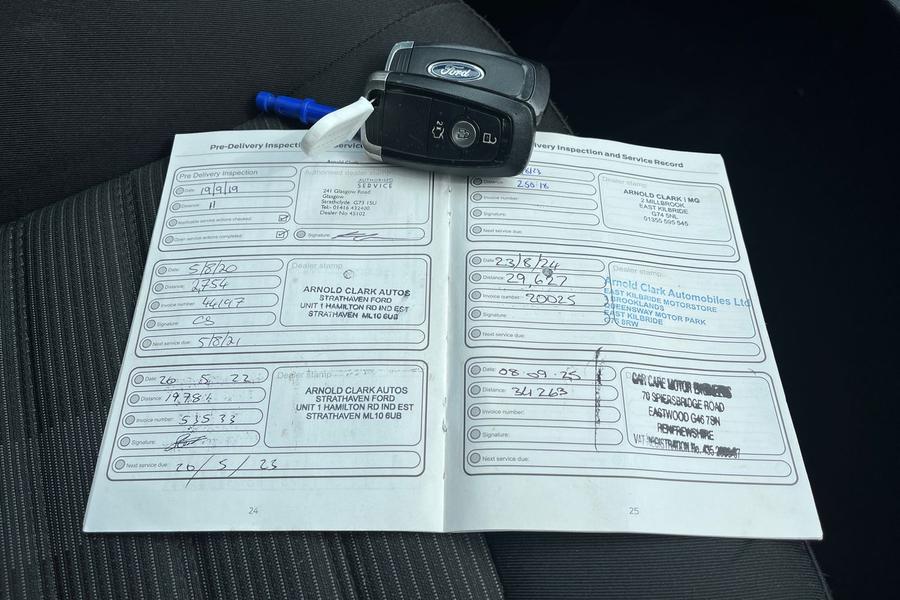 Ford
Pre-Delivery Inspection
Service
Delivery Inspection and Service Record
Pre Delivery Inspection
Date: 19/9/19
Distance: 11
Applicable service actions checked:
Open service actions completed:
Authorised dealer
AUTHORISED
SERVICE
241 Glasgow Road
Glasgow
Strathclyde. G73 1SU
Dealer No 45102
Signature:
Date: 5/8/20
Distance: 2,754
Invoice number: 44197
Signature: CS
Next service due: 5/8/21
Dealer stamp
ARNOLD CLARK AUTOS
STRATHAVEN FORD
UNIT 1 HAMILTON RD IND EST
STRATHAVEN ML10 6UB
Date: 20 5 22
Distance: 19,784
Invoice number: 53533
Signature:
Next service due: 20/5/23
Dealer stamp
ARNOLD CLARK AUTOS
STRATHAVEN FORD
UNIT 1 HAMILTON RD IND EST
STRATHAVEN ML10 6UB
24
Distance: 25018
Invoice number:
Signature:
Next service due:
Dealer stamp
ARNOLD CLARK MG
2 MILLBROOK
EAST KILBRIDE
G74 5NL
01355 595 545
Date: 23/8/24
Distance: 29,627
Invoice number: 20025
Signature:
Next service due:
Dealer stamp
Arnold Clark Automobiles Ltd
EAST KILBRIDE MOTORSTORE
BROOKLANDS
QUEENSWAY MOTOR PARK
EAST KILBRIDE
G75 8RW
Date: 08.09.25
Distance: 34263
Invoice number:
Signature:
Next service due:
CAR CARE MOTOR ENGINEERS
70 SPIERSBRIDGE ROAD
EASTWOOD G46 7SN
RENFREWSHIRE
VAT REGISTRATION No. 435
25